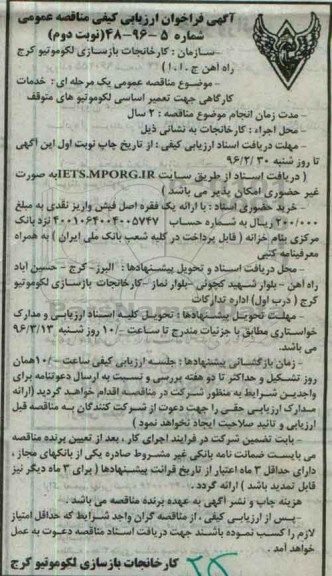 آگهی فراخوان ارزیابی کیفی مناقصه عمومی
شماره ۵ -۹۶-۴۸(نوبت دوم)
- سـازمان : کارخانجات بازسازی لکوموتیو کرج
راه آهن ج . ا . ا )
- موضـوع مناقصه عمومی یک مرحله ای : خدمات
کارگاهی جهت تعمیر اساسی لکوموتیو های متوقف
- مدت زمان انجام موضوع مناقصه : ۲ سال
- محل اجراء : کارخانجات به نشانی ذیل
- مهلت دریافت اسناد ارزیابی کیفی : از تاریخ چاپ نوبت اول این آگهی
تا روز شنبه ۹۶/۲/۳۰
( دریافت اسـناد از طریق سـایت IETS.MPORG.IR به صورت
غیر حضوری امکان پذیر می باشد )
- خرید حضوری اسناد : با ارائه یک فقره اصل فیش واریز نقدی به مبلغ
۲۰۰/۰۰۰ ریـال به شـماره حساب ۴۰۰۱۰۶۴۰۰۴۰۰۵۷۴۷ نزد بانک
مرکزی بنام خزانه ( قابل پرداخت در کلیه شعب بانک ملی ایران ) به همراه
معرفینامه کتبی
- محل دریافت اسـناد و تحویل پیشنهادها : البرز - کرج – حسین آباد
راه آهن – بلوار شـهید کچوئی- بلوار نماز -کارخانجات بازسازی لکوموتیو
کرج ( درب اول ) اداره تدارکات
- مهلت تحویل پیشنهادها : تحویـل کلیه اسـناد ارزیابـی و مدارک
خواسـتاری مطابق با جزئیات مندرج تا ساعت ۱۰/۰۰ روز شـنبه ۹۶/۳/۱۳
می باشد.
- زمان بازگشـائی پیشنهادها : جلسـه ارزیابی کیفی ساعت ۱۰/۰۰ همان
روز تشـکیل و حداکثر تا دو هفته بررسی و نسـبت به ارسال دعوتنامه برای
واجدیـن شـرایط به منظور شـرکت در مناقصـه اقدام خواهـد گردید (ارائه
مـدارک ارزیابـی حقـی را جهت دعوت از شـرکت کنندگان بـه مناقصه قبل
ارزیابی و تائید صلاحیت ایجاد نخواهد نمود )
- بابت تضمین شـرکت در فرایند اجرای کار ، بعد از تعیین برنده مناقصه
می بایسـت ضمانت نامه بانکی غیر مشـروط صادره یکی از بانکهای مجاز ،
دارای حداقل ۳ ماه اعتبار از تاریخ قرائت پیشنهادها ( برای ۳ ماه دیگر نیز
قابل تمدید باشد ) ارائه گردد .
هزینه چاپ و نشر آگهی به عهده برنده مناقصه می باشد .
-پـس از ارزیابـی کیفی ، از مناقصه گران واجد شـرایط که حداقل امتیاز
لازم را کسـب نمـوده باشـند جهـت دریافت اسـناد مناقصه دعوت به عمل
خواهد آمد .
کارخانجات بازسازی لکوموتیو کرج